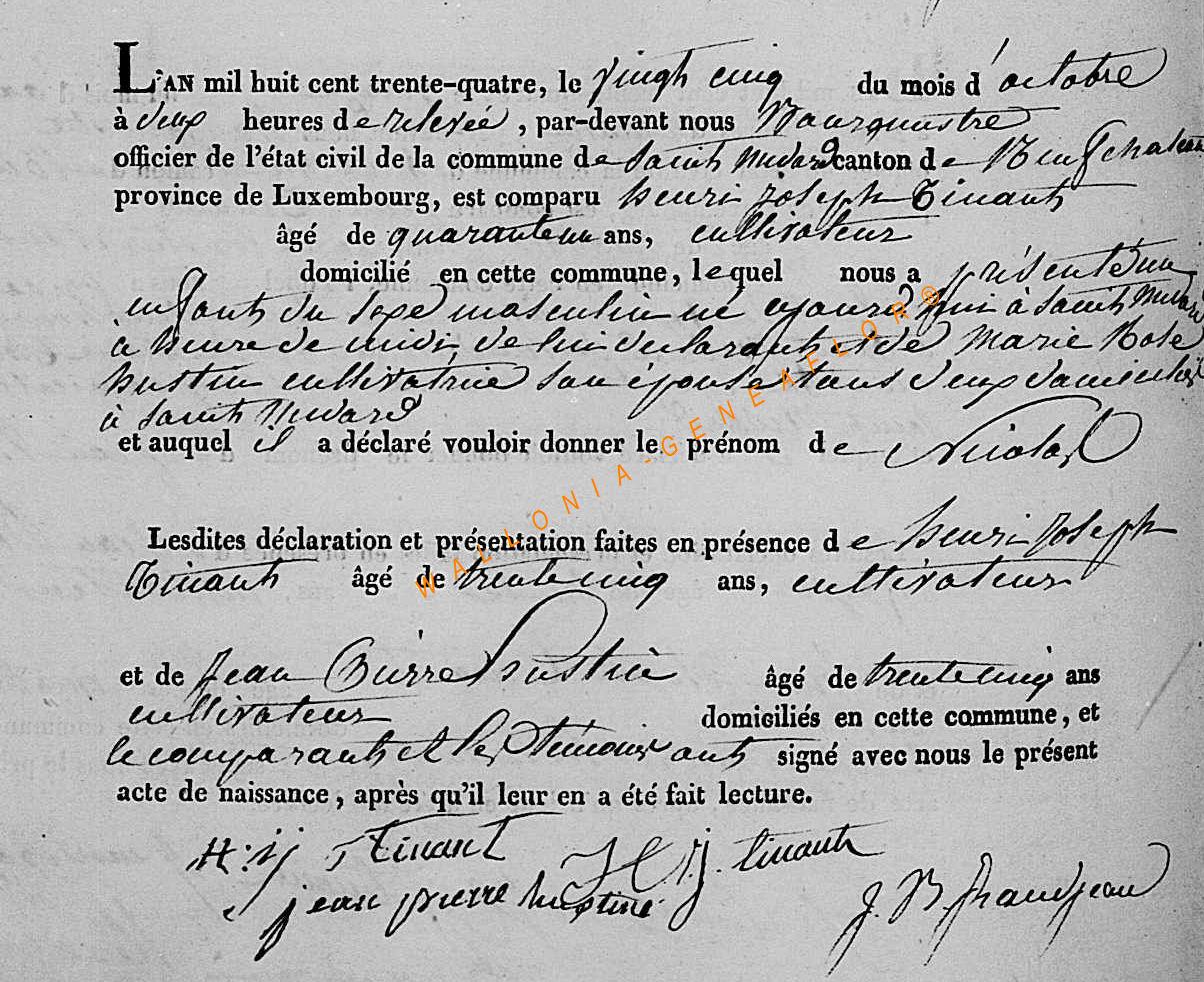 L'AN mil huit cent trente-quatre, le vingt cinq du mois d'octobre
à deux heures de relevée, par-devant nous Bourgmestre
officier de l'état civil de la commune de Saint Médard canton de Neufchateau
province de Luxembourg, est comparu henri joseph Tinant
âgé de quarante un ans, cultivateur
domicilié en cette commune, lequel nous a présenté un
enfant du sexe masculin né ajourd'hui à Saint Médard
à heure de midi de lui declarant et de Marie Rose
hustin cultivatrice son épouse tous deux domiciliés
à Saint Médard
et auquel il a déclaré vouloir donner le prénom de Nicolas
Lesdites déclaration et présentation faites en présence de henri joseph
Tinant âgé de trente cinq ans, cultivateur
et de Jean Pierre hustin âgé de trente cinq ans
cultivateur domiciliés en cette commune, et
le comparant et les témoins ont signé avec nous le présent
acte de naissance, après qu'il leur en a été fait lecture.
H: j Tinant H. j. tinant
jean pierre hustin J. B. grandjean
WALLONIA-GENEAFLOR®